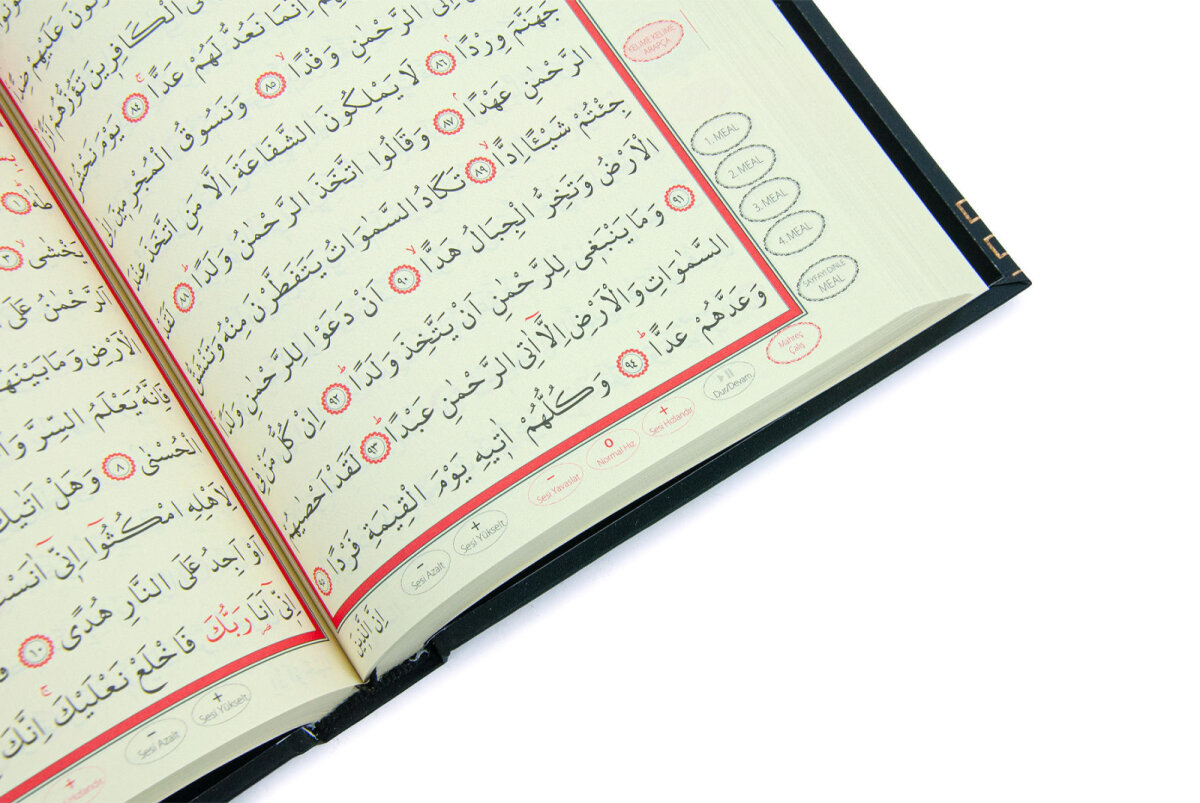 عَلَيْهِمْ ضِدًّا
الْكَافِرِينَ تَؤُزُّهُمْ اَزًّا
اِنَّمَا نَعُدُّ لَهُمْ عَدًّا ٨٤ يَوْمَ نَحْشُرُ
الرَّحْمٰنِ وَفْدًا ٨٥ وَنَسُوقُ الْمُجْرِمِينَ اِلٰى
جَهَنَّمَ وِرْدًا ٨٦ لَا يَمْلِكُونَ الشَّفَاعَةَ اِلَّا مَنِ اتَّخَذَ عِنْدَ
الرَّحْمٰنِ عَهْدًا ٨٧ وَقَالُوا اتَّخَذَ الرَّحْمٰنُ وَلَدًا ٨٨ لَقَدْ
جِئْتُمْ شَيْئًا اِدًّا ٨٩ تَكَادُ السَّمٰوَاتُ يَتَفَطَّرْنَ مِنْهُ وَتَنْشَقُّ
الْاَرْضُ وَتَخِرُّ الْجِبَالُ هَدًّا ٩٠ اَنْ دَعَوْا لِلرَّحْمٰنِ وَلَدًا
٩١ وَمَا يَنْبَغِى لِلرَّحْمٰنِ اَنْ يَتَّخِذَ وَلَدًا ٩٢ اِنْ كُلُّ مَنْ فِى
السَّمٰوَاتِ وَالْاَرْضِ اِلَّٓا اٰتِى الرَّحْمٰنِ عَبْدًا ٩٣ لَقَدْ اَحْصٰيهُمْ
وَعَدَّهُمْ عَدًّا ٩٤ وَكُلُّهُمْ اٰتِيهِ يَوْمَ الْقِيٰمَةِ فَرْدًا ٩٥
اِنَّ الَّذِينَ
KELİME KELİME ARAPÇA
1. MEAL
2. MEAL
3. MEAL
4. MEAL
SAYFAYI DİNLE MEAL
Mahreç Çalış
Dur/Devam
+ Sesi Hızlandır
0 Normal Hız
- Sesi Yavaşlat
+ Sesi Yükselt
- Sesi Azalt
طٰهٰ ١
يَخْشٰى ٣
اَلرَّحْمٰنُ عَلَى
الْاَرْضِ وَمَا بَيْنَهُمَا
فَاِنَّهُ يَعْلَمُ السِّرَّ
الْحُسْنٰى ٨ وَهَلْ اَتٰيكَ
لِاَهْلِهِ امْكُثُٓوا اِنِّٓى اٰنَسْتُ
اَوْ اَجِدُ عَلَى النَّارِ هُدًى ١٠
اِنِّٓى اَنَا رَبُّكَ فَاخْلَعْ نَعْلَيْكَ اِنَّكَ
+ Sesi Yükselt
- Sesi Azalt
+ Sesi Hızlandır